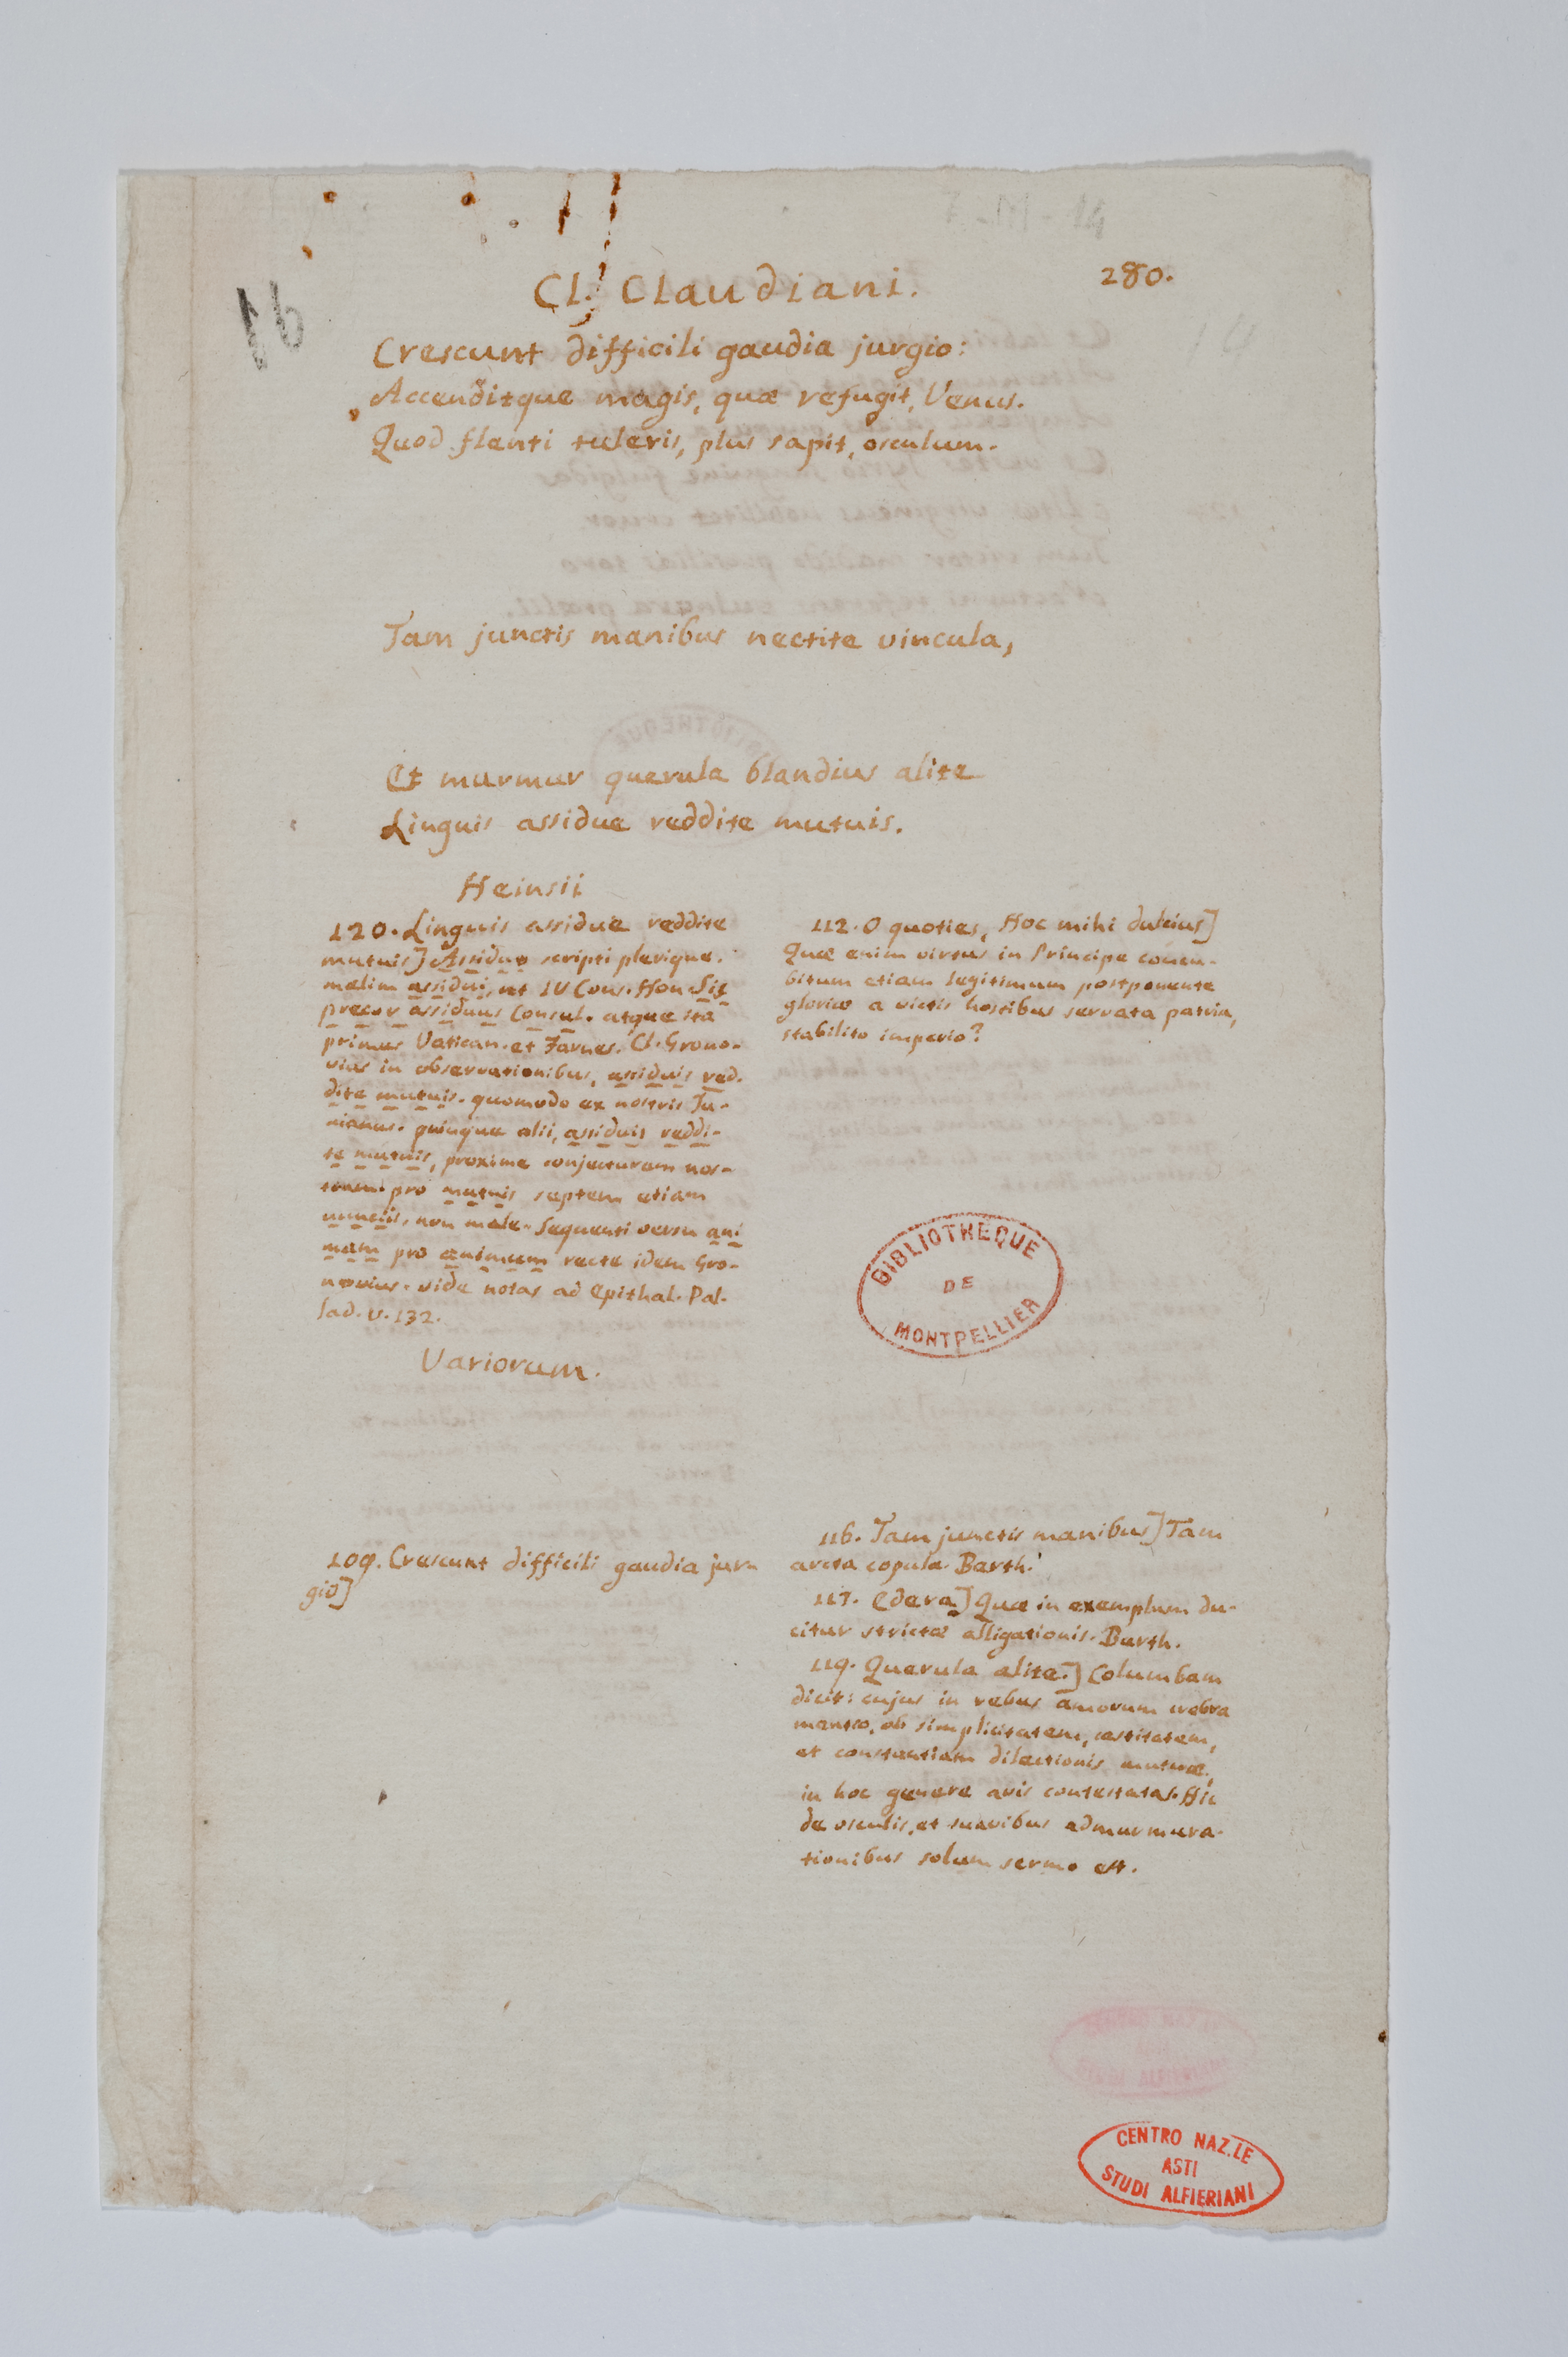 16
280.
Cl. Claudiani.
Crescunt difficili gaudia jurgio:
Accenditque magis, quæ refugit, Venus.
Quod flenti tuleris, plus sapit, osculum.
Tam junctis manibus nectite vincula,
Et murmur querula blandius alite
Linguis assidue reddite mutuis.
Heinsii
120. Linguis assidue reddite
mutuis] Assiduo scripti plerique.
malim assidui, ut IV Cons. Hon. Sis
precor assiduus Consul. atque ita
primus Vatican. et Farnes. Cl. Grono-
vius in observationibus, assiduis red.
dite mutuis. quomodo ex nostris Ju-
nianus. quinque alii, assiduis reddi-
te mutuis, proxime conjecturam nos-
tram. pro mutuis septem etiam
nunciis, non male. Sequenti versu ani
mam pro animum recte idem Gro-
novius. vide notas ad Epithal. Pal-
lad. v. 132.
Variorum.
109. Crescunt difficili gaudia jur-
gio]
112. O quoties, Hoc mihi dulcius]
Quæ enim virtus in Principe concu-
bitum etiam legitimum postponente
gloriæ a victis hostibus servata patria,
stabilito imperio?
BIBLIOTHEQUE
DE
MONTPELLIER
116. Tam junctis manibus] Tam
arcta copula. Barth.
117. Edera] Quæ in exemplum du-
citur strictæ alligationis. Barth.
119. Querula alite.] Columbam
dicit: cujus in rebus amorum crebra
mentio, ob simplicitatem, castitatem,
et constantiam dilectionis mutuæ,
in hoc genere avis contestatas. Hic
de osculis, et suavibus admurmura-
tionibus solum sermo est.
CENTRO NAZ.LE
ASTI
STUDI ALFIERIANI
CENTRO NAZ.LE
ASTI
STUDI ALFIERIANI